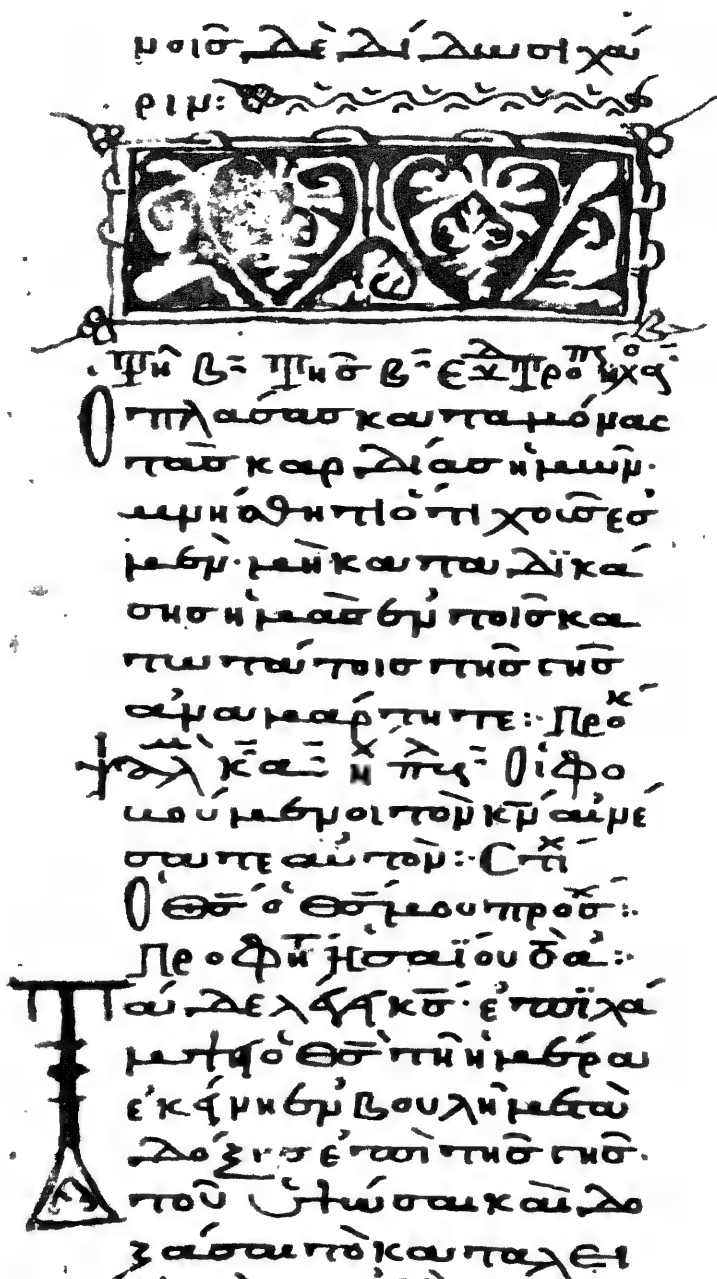 μοισ δὲ δίδωσι χά
ριν:
Τῆ β̄ τῆσ β̄ ἑβδ τροπ ἦχος
Ὁ πλάσασ καταμόνας
τὰσ καρδίασ ἡμῶν·
μνήσθητι ὅτι χοῦσ ἐσ
μὲν· μὴ καταδικά
σησ ἡμᾶσ ἐν τοῖσ κα
τωτάτοισ τῆσ γῆσ
ἀναμάρτητε:· Προκ
ψαλ κ̄ᾱ ἦχ πλ Οἱ φο
βούμενοι τὸν κ̄ν αἰνέ
σατε αὐτὸν:· Στιχ
Ὁ θ̄σ ὁ θ̄σ μου προσχ:·
Προφητ Ἠσαΐου δα:·
Τάδε λέγει κ̄σ· ἐπιλά
μψει ὁ θ̄σ τῆ ἡμέρα
ἐκείνη ἐν βουλῆ μετὰ
δόξησ ἐπὶ τῆσ γῆσ·
τοῦ ὑψῶσαι καὶ δο
ξάσαι τὸ καταλει